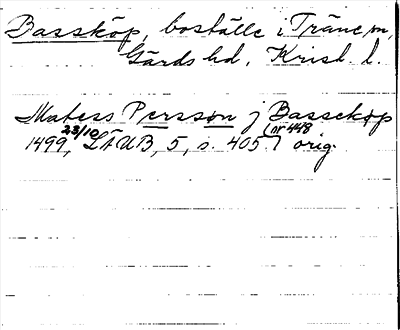 Bassköp, boställe i Träne sn,
Gärds hd, Krist. l.
Matess Persson j Bassekøp
1499 23/10, LÄUB, 5, s. 405 (nr 448) orig.